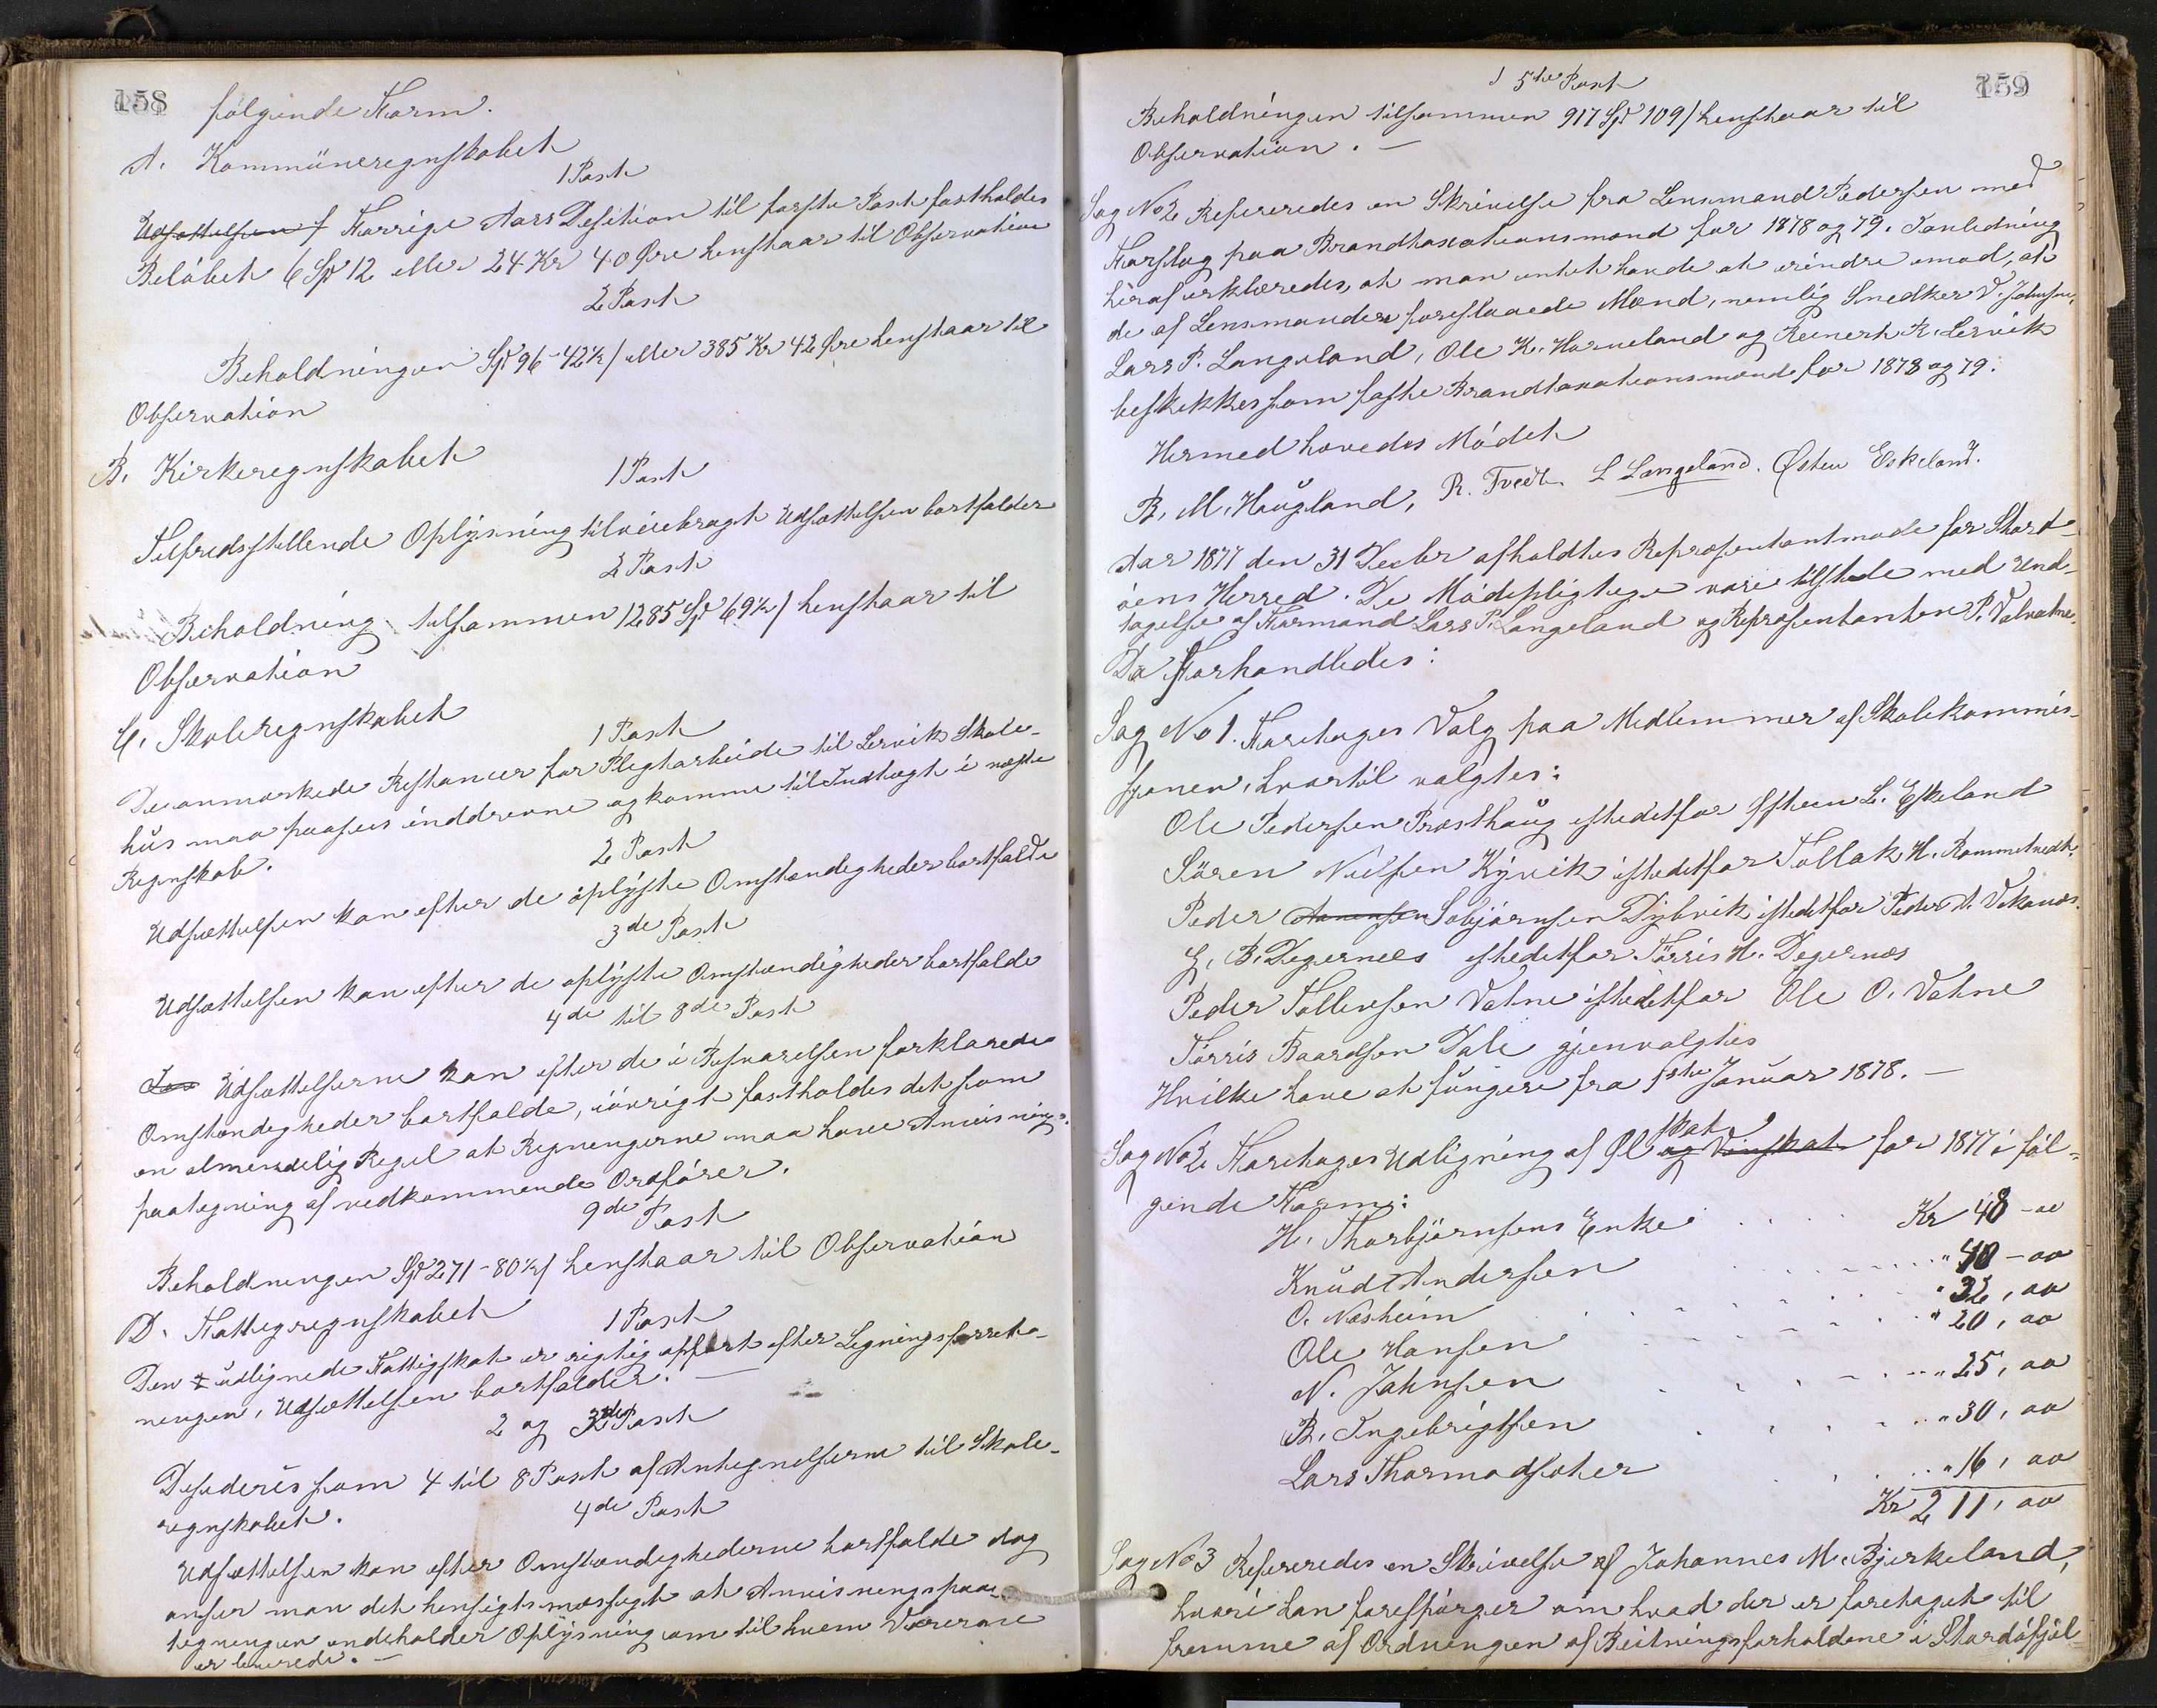 158
følgende Form.
A. Kommüneregnskabet
1 Post
Udsættelsen f Forrige Aars Desition til første Post fastholdes
Beløbet 6 Spd 12 eller 24 Kr 40 Øre henstaar til Observation
2 Post
Beholdningen Spd 96 - 42½ / eller 385 Kr 42 Øre henstaar til
Observation
B. Kirkeregnskabet
1 Post
Tilfredsstillende Oplysning tilveiebragt Udsættelsen bortfalder
2 Post
Beholdning tilsammen 1285 Spd 69½ / henstaar til
Observation
C. Skoleregnskabet
1 Post
De anmærkede Restancer for Pligtarbeide til Lervik Skole-
hus maa paasees inddrevne og komme til Indtægt i næste
Regnskab.
2 Post
Udsættelsen kan efter de oplyste Omstændigheder bortfalde
3de Post
Udsættelsen kan efter de oplyste Omstændigheder bortfalde
4de til 8de Post
Udsættelserne kan efter de i Besvarelsen forklarede
Omstændigheder bortfalde, iøvrigt fastholdes det som
en almendelig Regel at Regningerne maa have Anvisnings-
paategning af vedkommende Ordfører.
9de Post
Beholdningen Spd 271 - 80½ / henstaar til Observation
D. Fattigregnskabet
1 Post
Den udlignede Fattigskat er rigtig opført efter Ligningsforretn-
ningen, Udsættelsen bortfalder. —
2 og 3de Post
Desideres som 4 til 8 Post af Antegnelserne til Skole-
regnskabet.
4de Post
Udsættelsen kan efter Omstændighederne bortfalde dog
anser man det hensigtsmæssigt at Anvisningspaa-
tegningen indeholder Oplysning om til hvem Varerne
er leverede. —
159
5te Post
Beholdningen tilsammen 917 Spd 109 / henstaar til
Observation. —
Sag No 2 Refereredes en Skrivelse fra Lensmand Pedersen med
Forslag paa Brandtaxationsmænd for 1878 og 79. I anledning
heraf erklæredes, at man intet havde at erindre imod, at
de af Lensmanden foreslaaede Mænd, nemlig Snedker V. Johnsen,
Lars P. Langeland, Ole K. Horneland og Reinert R. Lervik
beskikkes som faste Brandtaxationsmænd for 1878 og 79.
Hermed hævedes Mødet
B. M. Haugland, R. Tvedt. L Langeland. Østen Eskeland.
Aar 1877 den 31 Decbr afholdtes Repræsentantmøde for Stord-
øens Herred. De Mødepligtige vare tilstede med Und-
tagelse af Formand Lars P. Langeland og Repræsentanten P. Valvatne.
Da Forhandledes:
Sag No 1. Foretoges Valg paa Medlemmer af Skolekommis-
sjonen, hvortil valgtes:
Ole Pedersen Præsthaug istedetfor Østen L. Eskeland
Sören Nielsen Kyvik istedetfor Tollak H. Rommetvedt.
Peder Anensen Sobjørnsen Dybvik istedetfor Peder A. Vikanes.
G. B. Degernes istedetfor Törris H. Degernæs
Peder Tollevsen Vatne istedetfor Ole O. Vatne
Törris Baardsen Dale gjenvalgtes
Hvilke have at fungere fra 1ste Januar 1878. —
Sag No 2 Foretoges Udligning af Øl skat og Vinskat for 1877 i föl-
gende Form:
H. Thorbjörnsens Enke . . . . Kr 48 - 00
Knud Andersen . . . . " 40 - 00
O. Næsheim . . . . " 32, 00
Ole Hansen . . . . " 20, 00
N. Johnsen . . . . " 25, 00
B. Ingebrigtsen . . . . " 30, 00
Lars Thormodsæter . . . . " 16, 00
Kr 211, 00
Sag No 3 Refereredes en Skrivelse af Johannes M. Bjerkeland,
hvori han forespørger om hvad der er foretaget til
fremme af Ordningen af Beitningsforholdene i Stordøfjel-